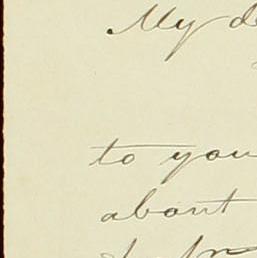 My d
to you
about